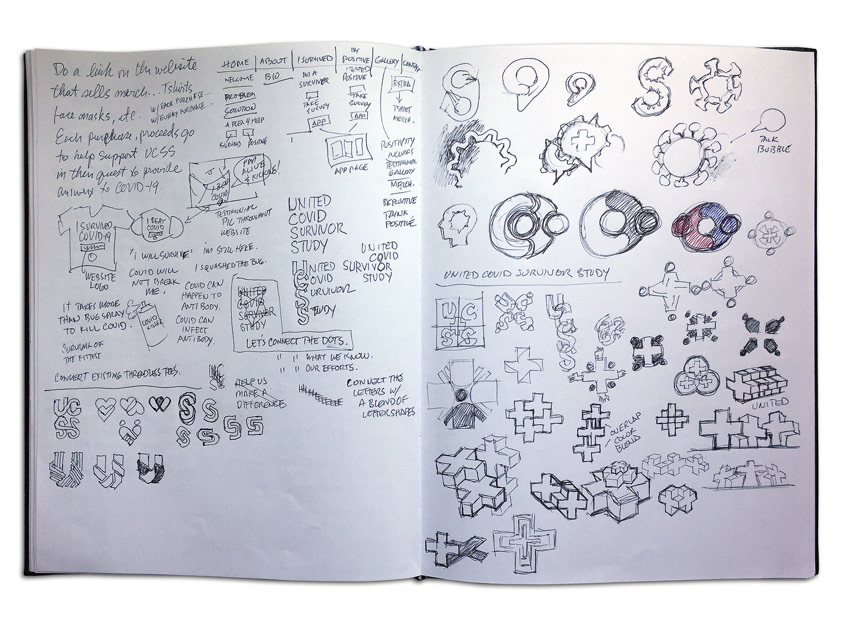 Do a link on the website
that sells merch... Tshirts
face masks, etc.
w/ EACH PURCHASE..
w/ EVERY PURCHASE...
Each purchase, proceeds go
to help support UCSS
in their quest to provide
answers to COVID-19.
HOME | ABOUT | I SURVIVED | GALLERY | CONTACT
WELCOME
PROBLEM
SOLUTION
BIO
I'M A
SURVIVOR
TAKE
SURVEY
APP
POSITIVE
TAKE
SURVEY
APP
APP PAGE
EXTRA
TSHIRT
MERCH.
POSITIVITY
INCLUDES
TESTIMONIAL
GALLERY
MERCH.
THINK
POSITIVE
I BEAT
COVID
ALIVE
& KICKING!
TESTIMONIAL
PIC THROUGHOUT
WEBSITE
I SURVIVED
COVID-19
WEBSITE
LOGO
I BEAT
COVID
"I WILL SURVIVE"
I'M STILL HERE.
COULD WILL
NOT BREAK
ME.
I SQUASHED THE BUG.
IT TAKES MORE
THAN BUG SPRAY
TO KILL COVID.
COVID
KILLER
COVID CAN
HAPPEN TO
ANTI BODY.
COVID CAN
INFECT
ANTIBODY.
SURVIVAL OF
THE FITTEST
UNITED
COVID
SURVIVOR
STUDY
UNITED
COVID
SURVIVOR
STUDY
UNITED
COVID
SURVIVOR
STUDY
UNITED
COVID
SURVIVOR
STUDY
LET'S CONNECT THE DOTS.
" " WHAT WE KNOW.
" " OUR EFFORTS.
CONVERT EXISTING THREADLESS TEES.
HELP US
MAKE A
DIFFERENCE
CONNECT THE
LETTERS w/
A BLEND OF
LETTER SHAPES
UC
SS
TALK
BUBBLE
UNITED COVID SURVIVOR STUDY
UC
SS
UNITED
OVERLAP
COLOR
BLEND